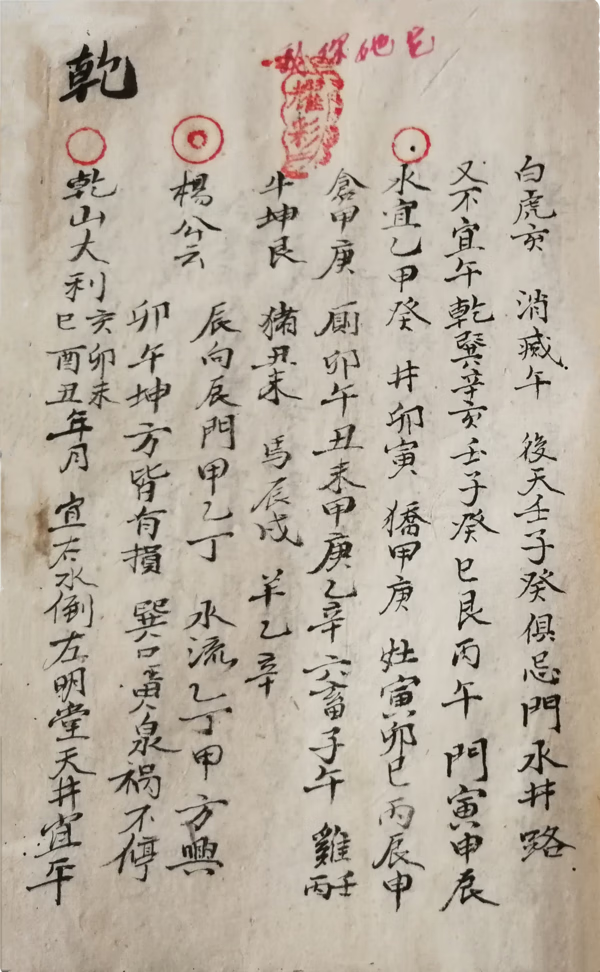 白虎亥 消滅午 後天壬子癸俱忌門水井路
又不宜午乾巽辛亥壬子癸巳艮丙午 門寅申辰
水宜乙甲癸 井卯寅 甲庚 灶寅卯巳丙辰申
倉甲庚 厠卯午丑未甲庚乙辛 六畜子午 雞壬丙酉
牛坤艮 猪丑未 馬辰戌 羊乙辛
楊公云 辰向辰門甲乙丁 水流乙丁甲方興
卯午坤方皆有損 巽口黃泉禍不停
乾
乾山大利亥卯未巳酉丑年月 宜右水倒左明堂天井宜平